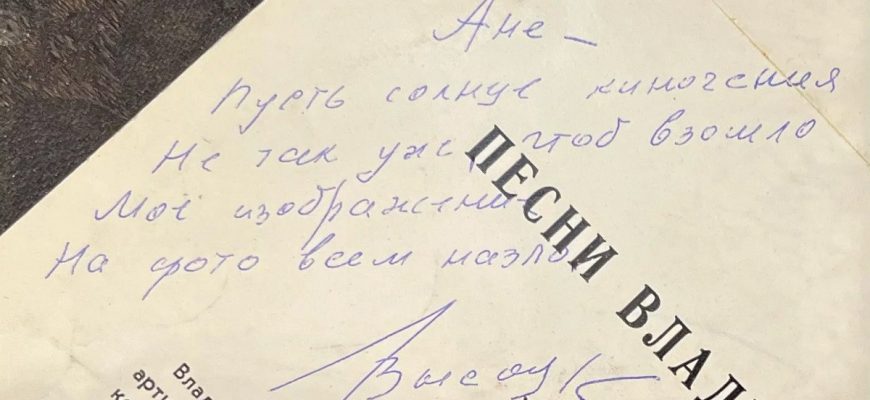 Ане –
Пусть солнце киногения
Не так уже, чтоб взошло
Мое изображение
На фото всем назло
Высоцк
ПЕСНИ ВЛАДИ
Влад
арти
ко